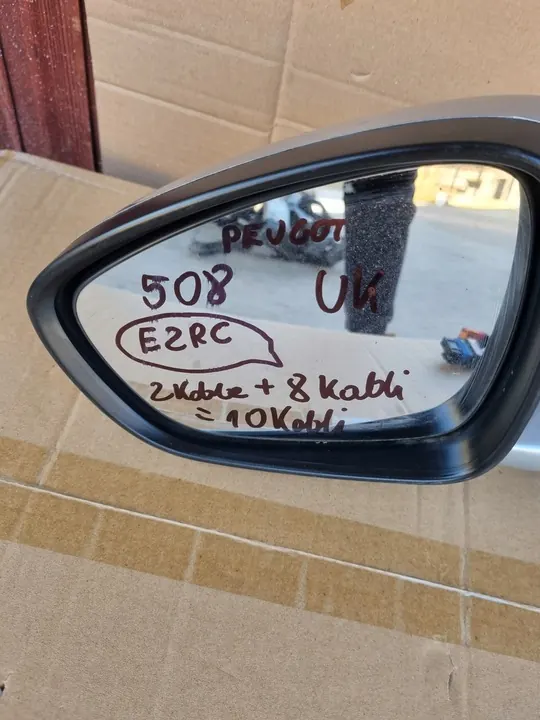 PEUGOT
508 UK
EZRC
2 Kable + 8 Kabli
= 10 Kabli